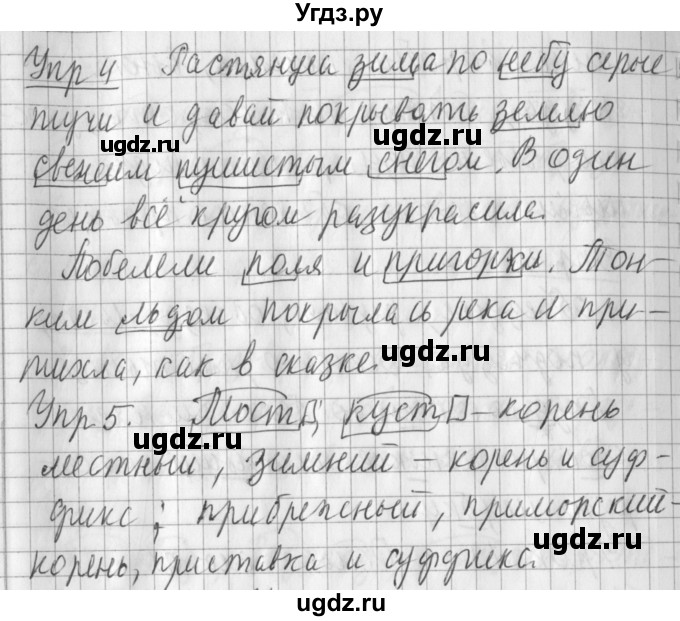 Угдз.ру
Упр 4 Растянула зима по небу серые
тучи и давай покрывать землю
свежим пушистым снегом. В один
день всё кругом разукрасила.
Побелели поля и пригорки. Тон-
ким льдом покрылась река и при-
тихла, как в сказке.
Упр 5. Мост куст - корень
местный, зимний - корень и суф-
фикс; прибрежный, приморский-
корень, приставка и суффикс.
ugdz.ru
ugdz.ru
ugdz.ru
ugdz.ru
ugdz.ru
ugdz.ru
ugdz.ru
ugdz.ru